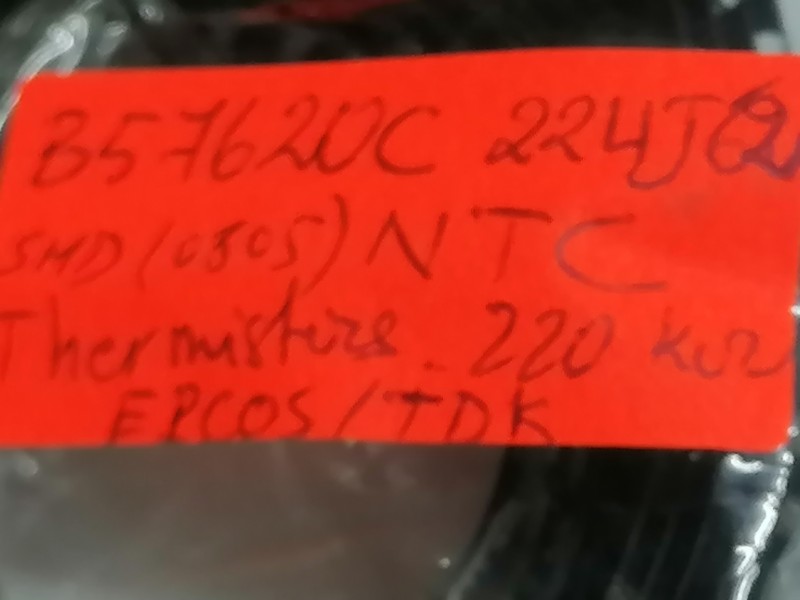 B57620C 224J62
SMD (0805) NTC
Thermistors - 220
EPCOS/TDK